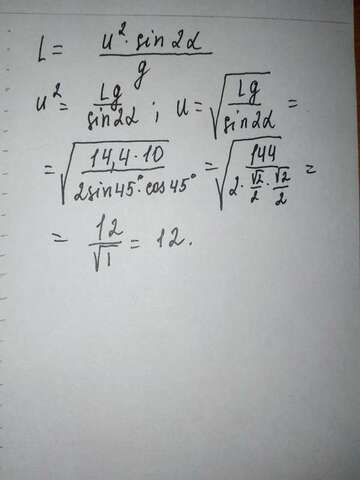 L = u²·sin2α / g
u² = Lg / sin2α ; u = √(Lg / sin2α) =
= √(14,4·10 / 2sin45°·cos45°) = √(144 / 2·√2/2·√2/2) =
= 12 / √1 = 12.